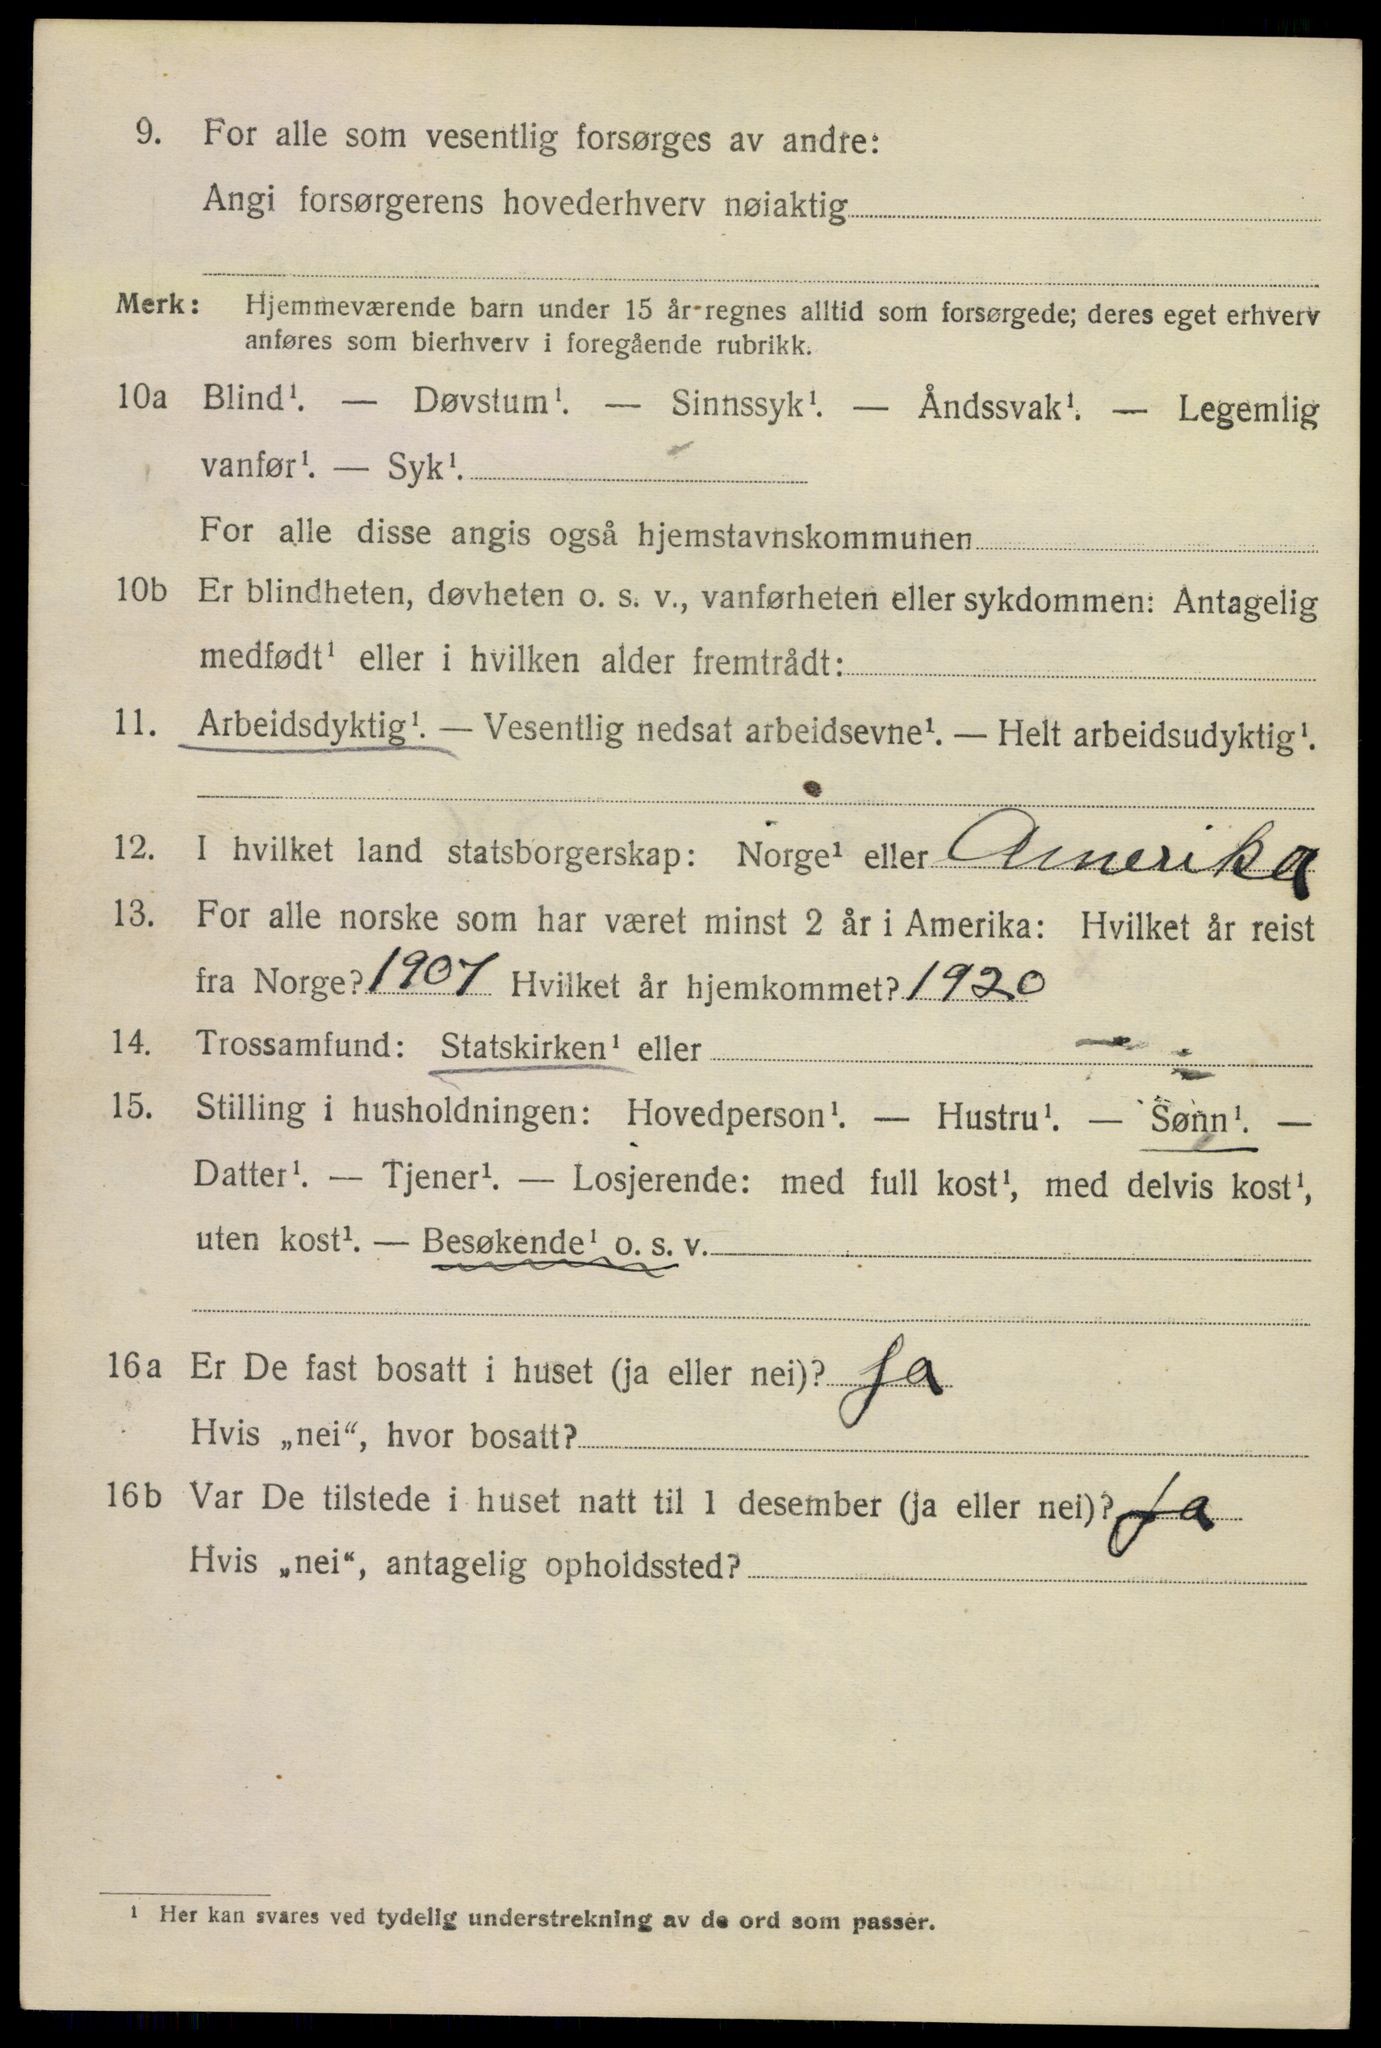 9. For alle som vesentlig forsørges av andre:
Angi forsørgerens hovederhverv nøiaktig
Merk: Hjemmeværende barn under 15 år regnes alltid som forsørgede; deres eget erhverv
anføres som bierhverv i foregående rubrikk.
10a Blind¹. — Døvstum¹. — Sinnssyk¹. — Åndssvak¹. — Legemlig
vanfør¹. — Syk¹.
For alle disse angis også hjemstavnskommunen
10b Er blindheten, døvheten o. s. v., vanførheten eller sykdommen: Antagelig
medfødt¹ eller i hvilken alder fremtrådt:
11. Arbeidsdyktig¹. — Vesentlig nedsat arbeidsevne¹. — Helt arbeidsudyktig¹.
12. I hvilket land statsborgerskap: Norge¹ eller Amerika
13. For alle norske som har været minst 2 år i Amerika: Hvilket år reist
fra Norge? 1907 Hvilket år hjemkommet? 1920
14. Trossamfund: Statskirken¹ eller
15. Stilling i husholdningen: Hovedperson¹. — Hustru¹. — Sønn¹. —
Datter¹. — Tjener¹. — Losjerende: med full kost¹, med delvis kost¹,
uten kost¹. — Besøkende¹ o. s. v.
16a Er De fast bosatt i huset (ja eller nei)? Ja
Hvis „nei“, hvor bosatt?
16b Var De tilstede i huset natt til 1 desember (ja eller nei)? Ja
Hvis „nei“, antagelig opholdssted?
¹ Her kan svares ved tydelig understrekning av de ord som passer.